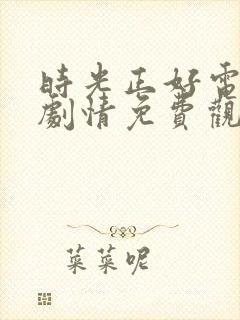 時光正好電
劇情免費觀
菜菜呢